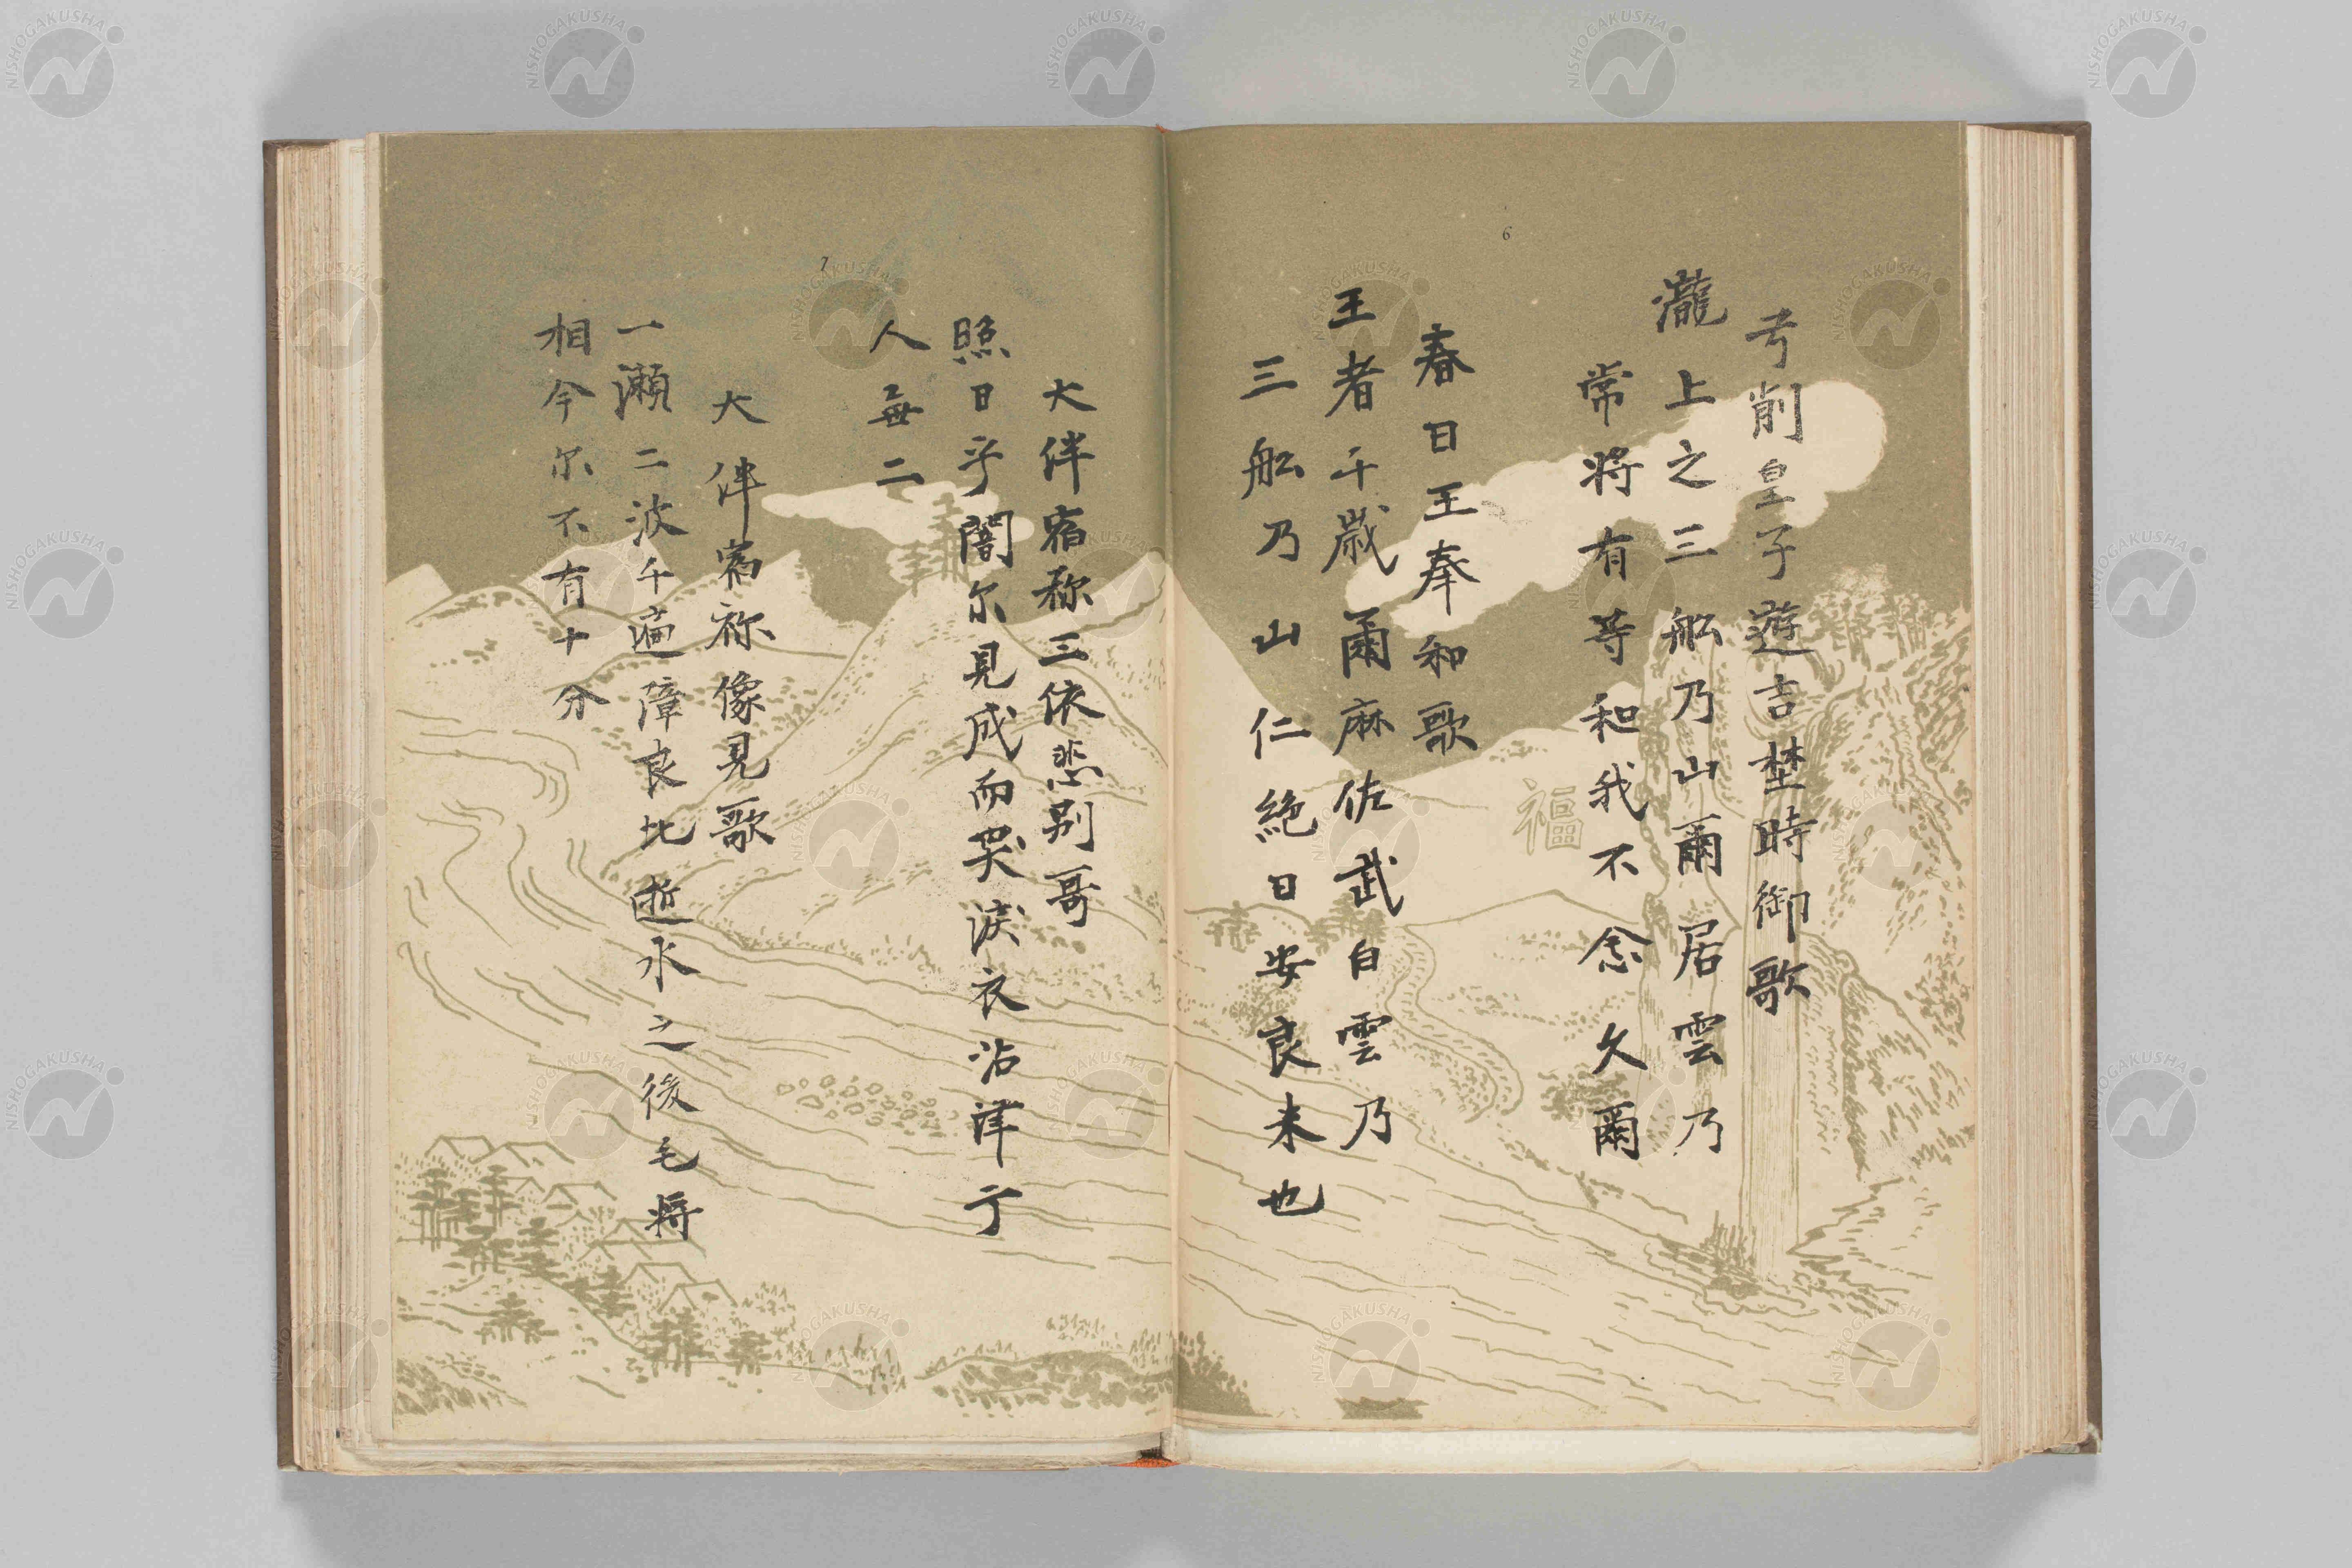 6
弓削皇子遊吉埜時御歌
瀧上之三舩乃山爾居雲乃
常将有等和我不念久爾
福
春日王奉和歌
王者千歳爾麻佐武白雲乃
三舩乃山仁絶日安良米也
7
大伴宿祢三依悲別哥
照日乎闇尓見成而哭涙衣沾津干
人無二
大伴宿祢像見歌
一瀬二波千遍障良比逝水之後毛将
相今尓不有十分
NISHOGAKUSHA